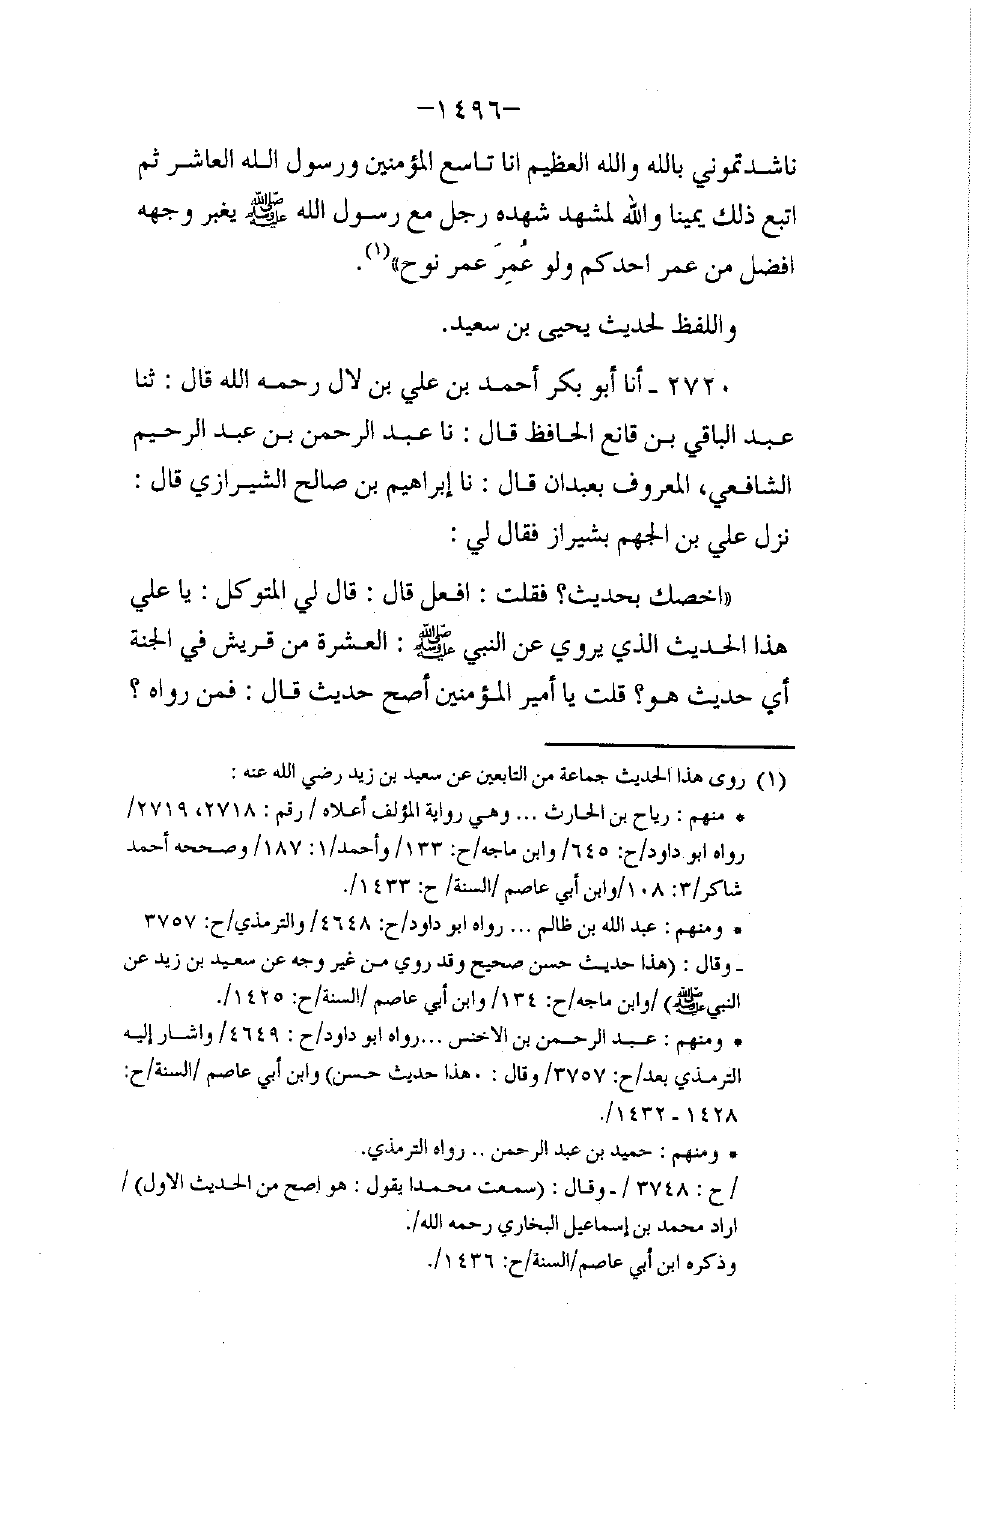 -١٤٩٦-
ناشدتموني بالله والله العظيم انا تاسع المؤمنين ورسول الله العاشر ثم
اتبع ذلك يمينا والله لمشهد شهده رجل مع رسول الله ﷺ يغبر وجهه
افضل من عمر احدكم ولو عُمِرَ عمر نوح»(١).
واللفظ لحديث يحيى بن سعيد.
٢٧٢٠ ـ أنا أبو بكر أحمد بن علي بن لال رحمه الله قال : ثنا
عبد الباقي بن قانع الحافظ قال : نا عبد الرحمن بن عبد الرحيم
الشافعي، المعروف بعبدان قال : نا إبراهيم بن صالح الشيرازي قال :
نزل علي بن الجهم بشيراز فقال لي :
«اخصك بحديث؟ فقلت : افعل قال : قال لي المتوكل : يا علي
هذا الحديث الذي يروي عن النبي ﷺ : العشرة من قريش في الجنة
أي حديث هو؟ قلت يا أمير المؤمنين أصح حديث قال : فمن رواه ؟
(١) روى هذا الحديث جماعة من التابعين عن سعيد بن زيد رضي الله عنه :
* منهم : رياح بن الحارث ... وهي رواية المؤلف أعلاه / رقم : ٢٧١٨، ٢٧١٩/
رواه ابو داود/ح: ٦٤٥/ وابن ماجه/ح: ١٣٣/ وأحمد/١: ١٨٧/ وصححه أحمد
شاكر/٣: ١٠٨/وابن أبي عاصم /السنة/ ح: ١٤٣٣/.
* ومنهم : عبد الله بن ظالم ... رواه ابو داود/ح: ٤٦٤٨/ والترمذي/ح: ٣٧٥٧
ـ وقال : (هذا حديث حسن صحيح وقد روي من غير وجه عن سعيد بن زيد عن
النبي ﷺ) /وابن ماجه/ح: ١٣٤/ وابن أبي عاصم /السنة/ح: ١٤٢٥/.
* ومنهم : عبد الرحمن بن الاخنس ...رواه ابو داود/ح : ٤٦٤٩/ واشار إليه
الترمذي بعد/ح: ٣٧٥٧/ وقال : ٠هذا حديث حسن) وابن أبي عاصم /السنة/ح:
١٤٢٨ ـ ١٤٣٢/.
* ومنهم : حميد بن عبد الرحمن .. رواه الترمذي.
/ ح : ٣٧٤٨ /ـ وقال : (سمعت محمدا يقول : هو اصح من الحديث الاول) /
اراد محمد بن إسماعيل البخاري رحمه الله/.
وذكره ابن أبي عاصم/السنة/ح: ١٤٣٦/.